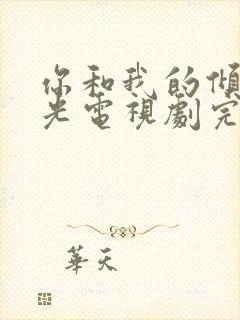 你和我的傾
光電視劇完
華天